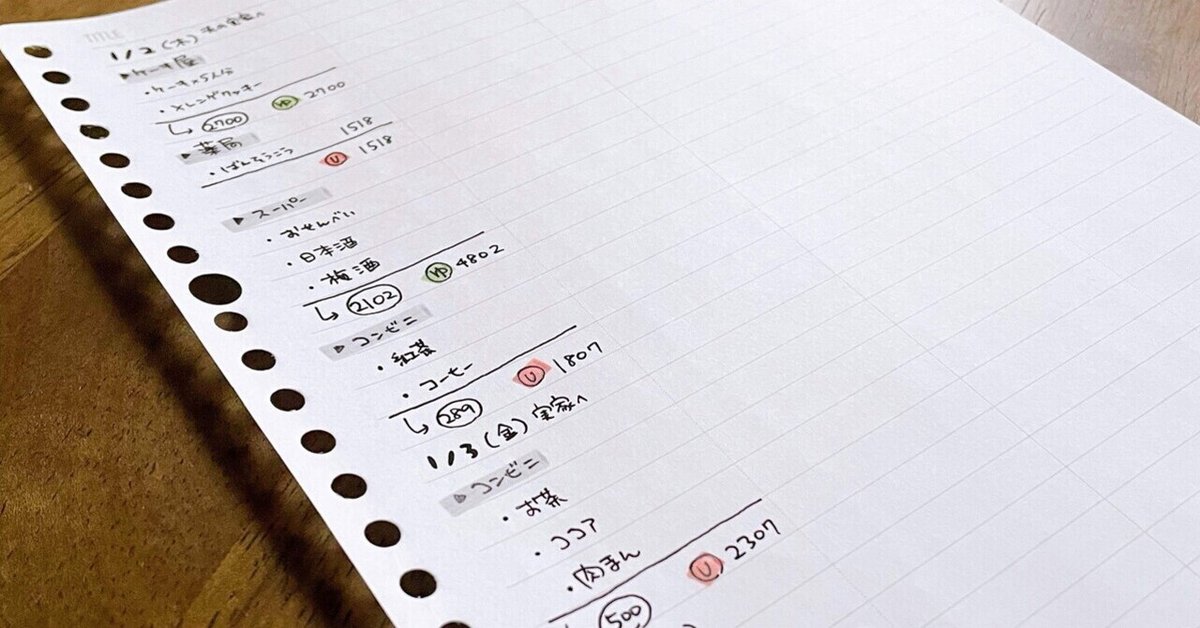 TITLE
1/2(木) 夫の実家へ
▶ケーキ屋
・ケーキ×5人分
・メレンゲクッキー
↳ 2700 ゆ 2700
▶薬局 1518
・ばんそうこう U 1518
▶スーパー
・おせんべい
・日本酒
・梅酒
↳ 2102 ゆ 4802
▶コンビニ
・紅茶
・コーヒー
↳ 289 U 1807
1/3(金)実家へ
▶コンビニ
・お茶
・ココア
・肉まん
500 U 2307